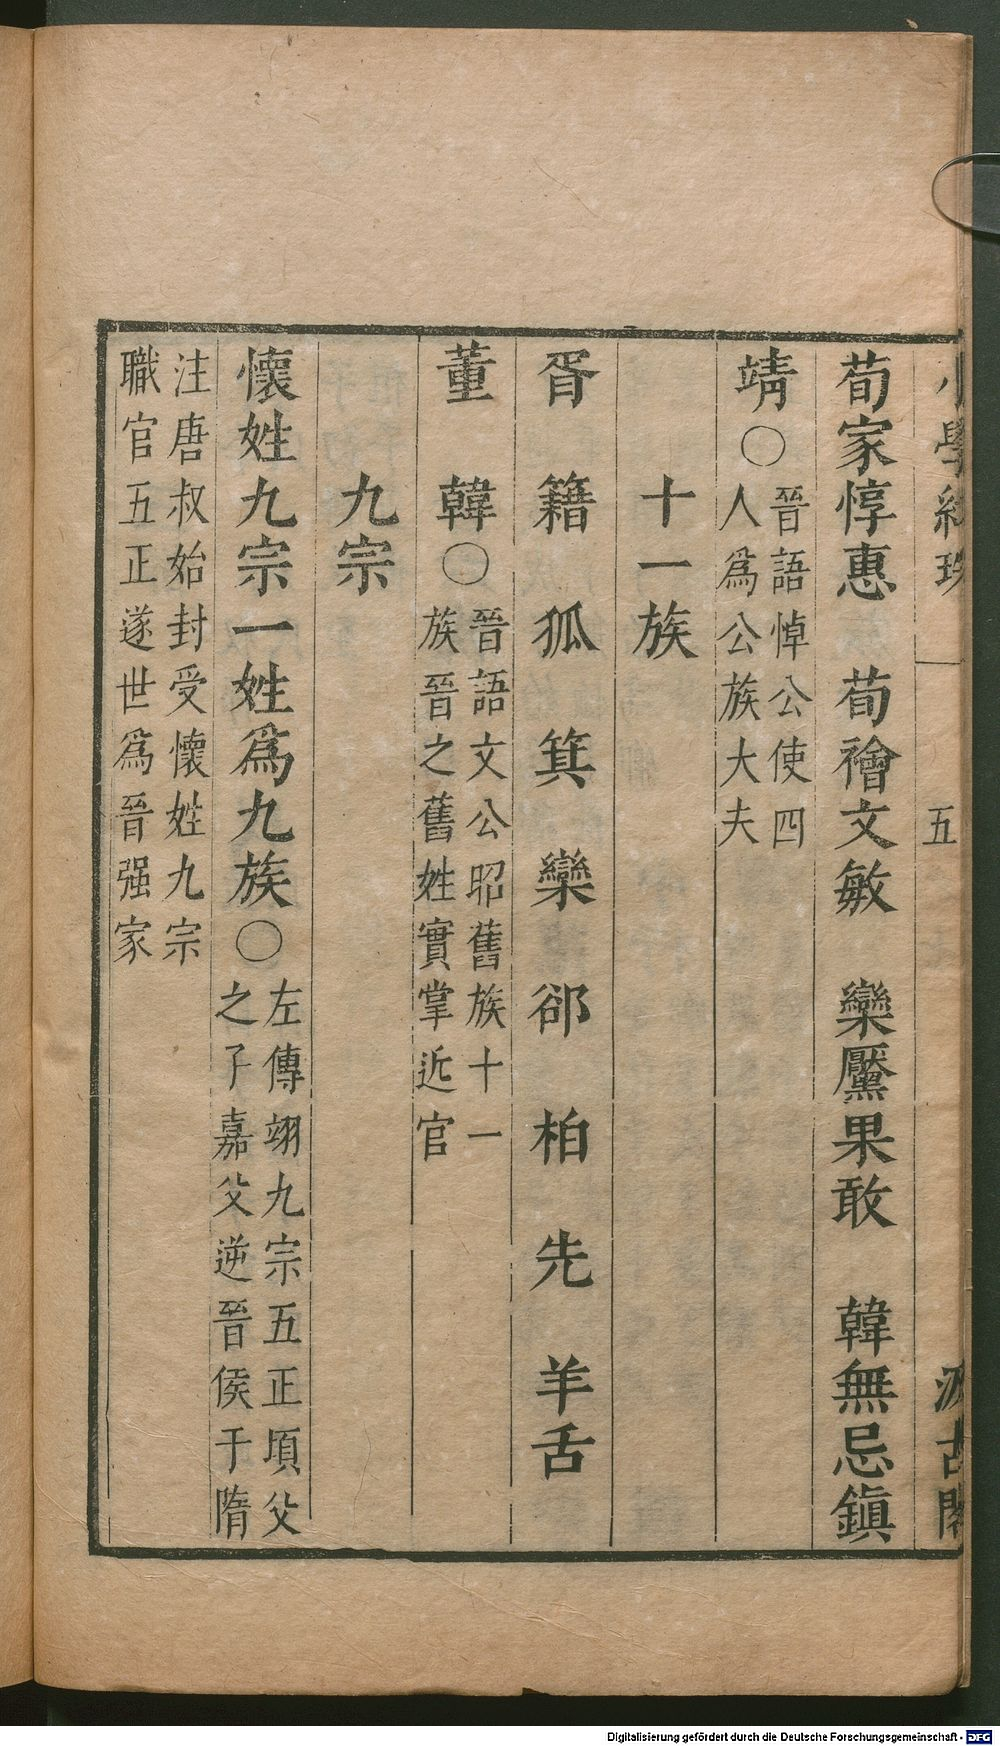 小學紺珠 五 汲古閣
荀家惇惠 荀襘文敏 欒黶果敢 韓無忌鎮
靖○晉語悼公使四
人爲公族大夫
十一族
胥 籍 狐 箕 欒 郤 柏 先 羊舌
董 韓○晉語文公昭舊族十一
族晉之舊姓實掌近官
九宗
懷姓九宗一姓爲九族○左傳翊九宗五正頃父
之子嘉父逆晉侯于隋
注唐叔始封受懷姓九宗
職官五正遂世爲晉强家
Digitalisierung gefördert durch die Deutsche Forschungsgemeinschaft - DFG